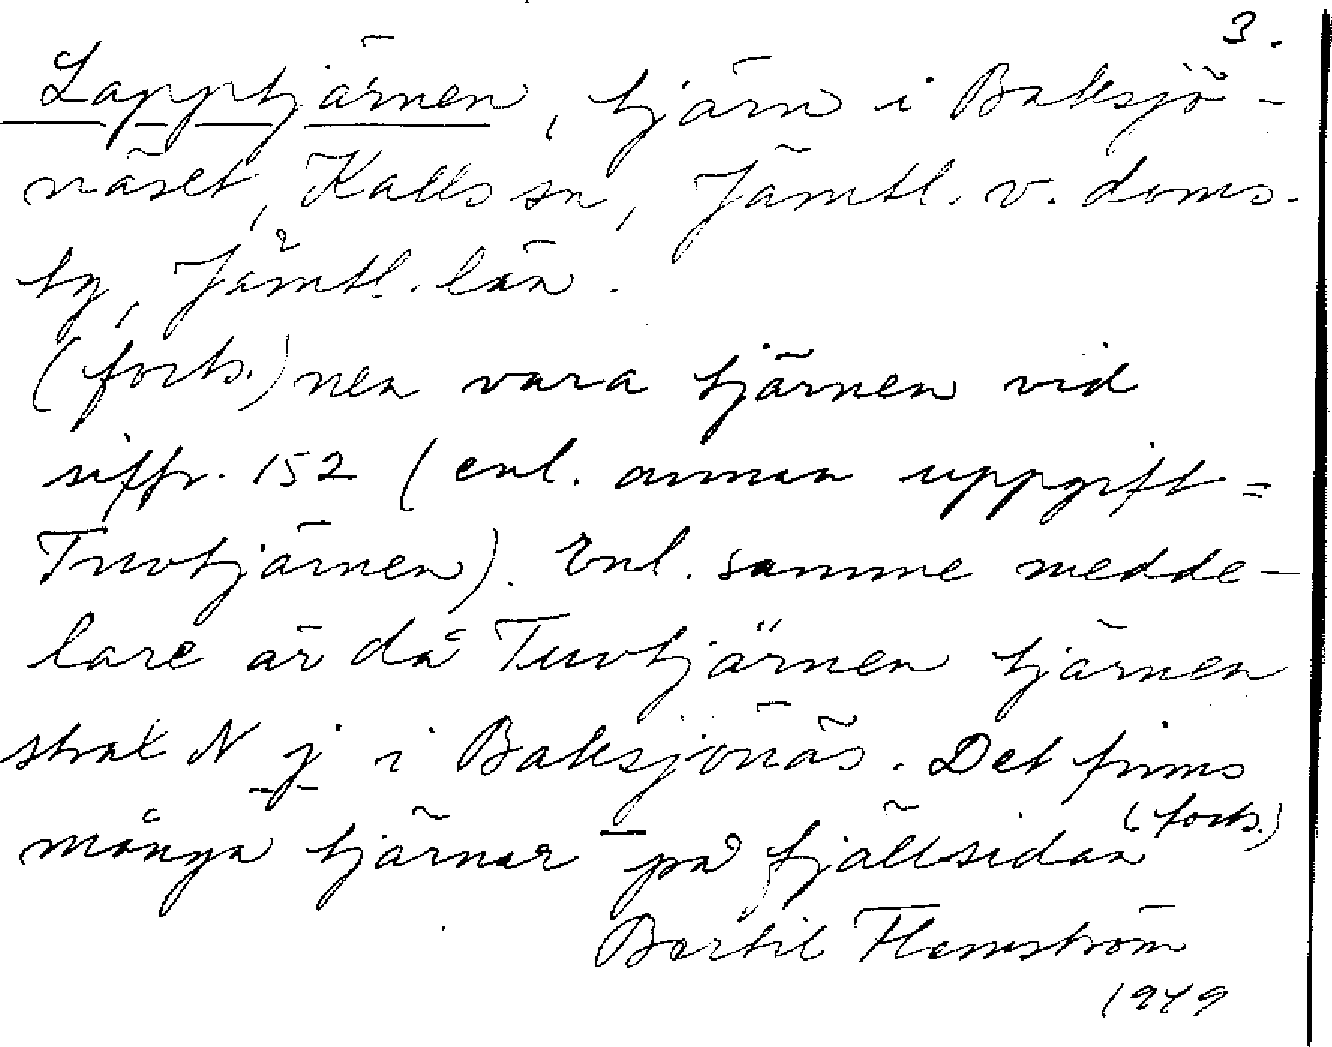 3.
Lapptjärnen, tjärn i Baksjö-
näset, Kalls sn, Jämtl. v. doms-
ty, Jämtl. län.
(forts.) nen vara tjärnen vid
siffr. 152 (enl. annan uppgift =
Tuvtjärnen). Enl. samme medde-
lare är då Tuvtjärnen tjärnen
strax N j i Baksjönäs. Det finns
många tjärnar på fjällsidan
(forts.)
Bertil Flemström
1949